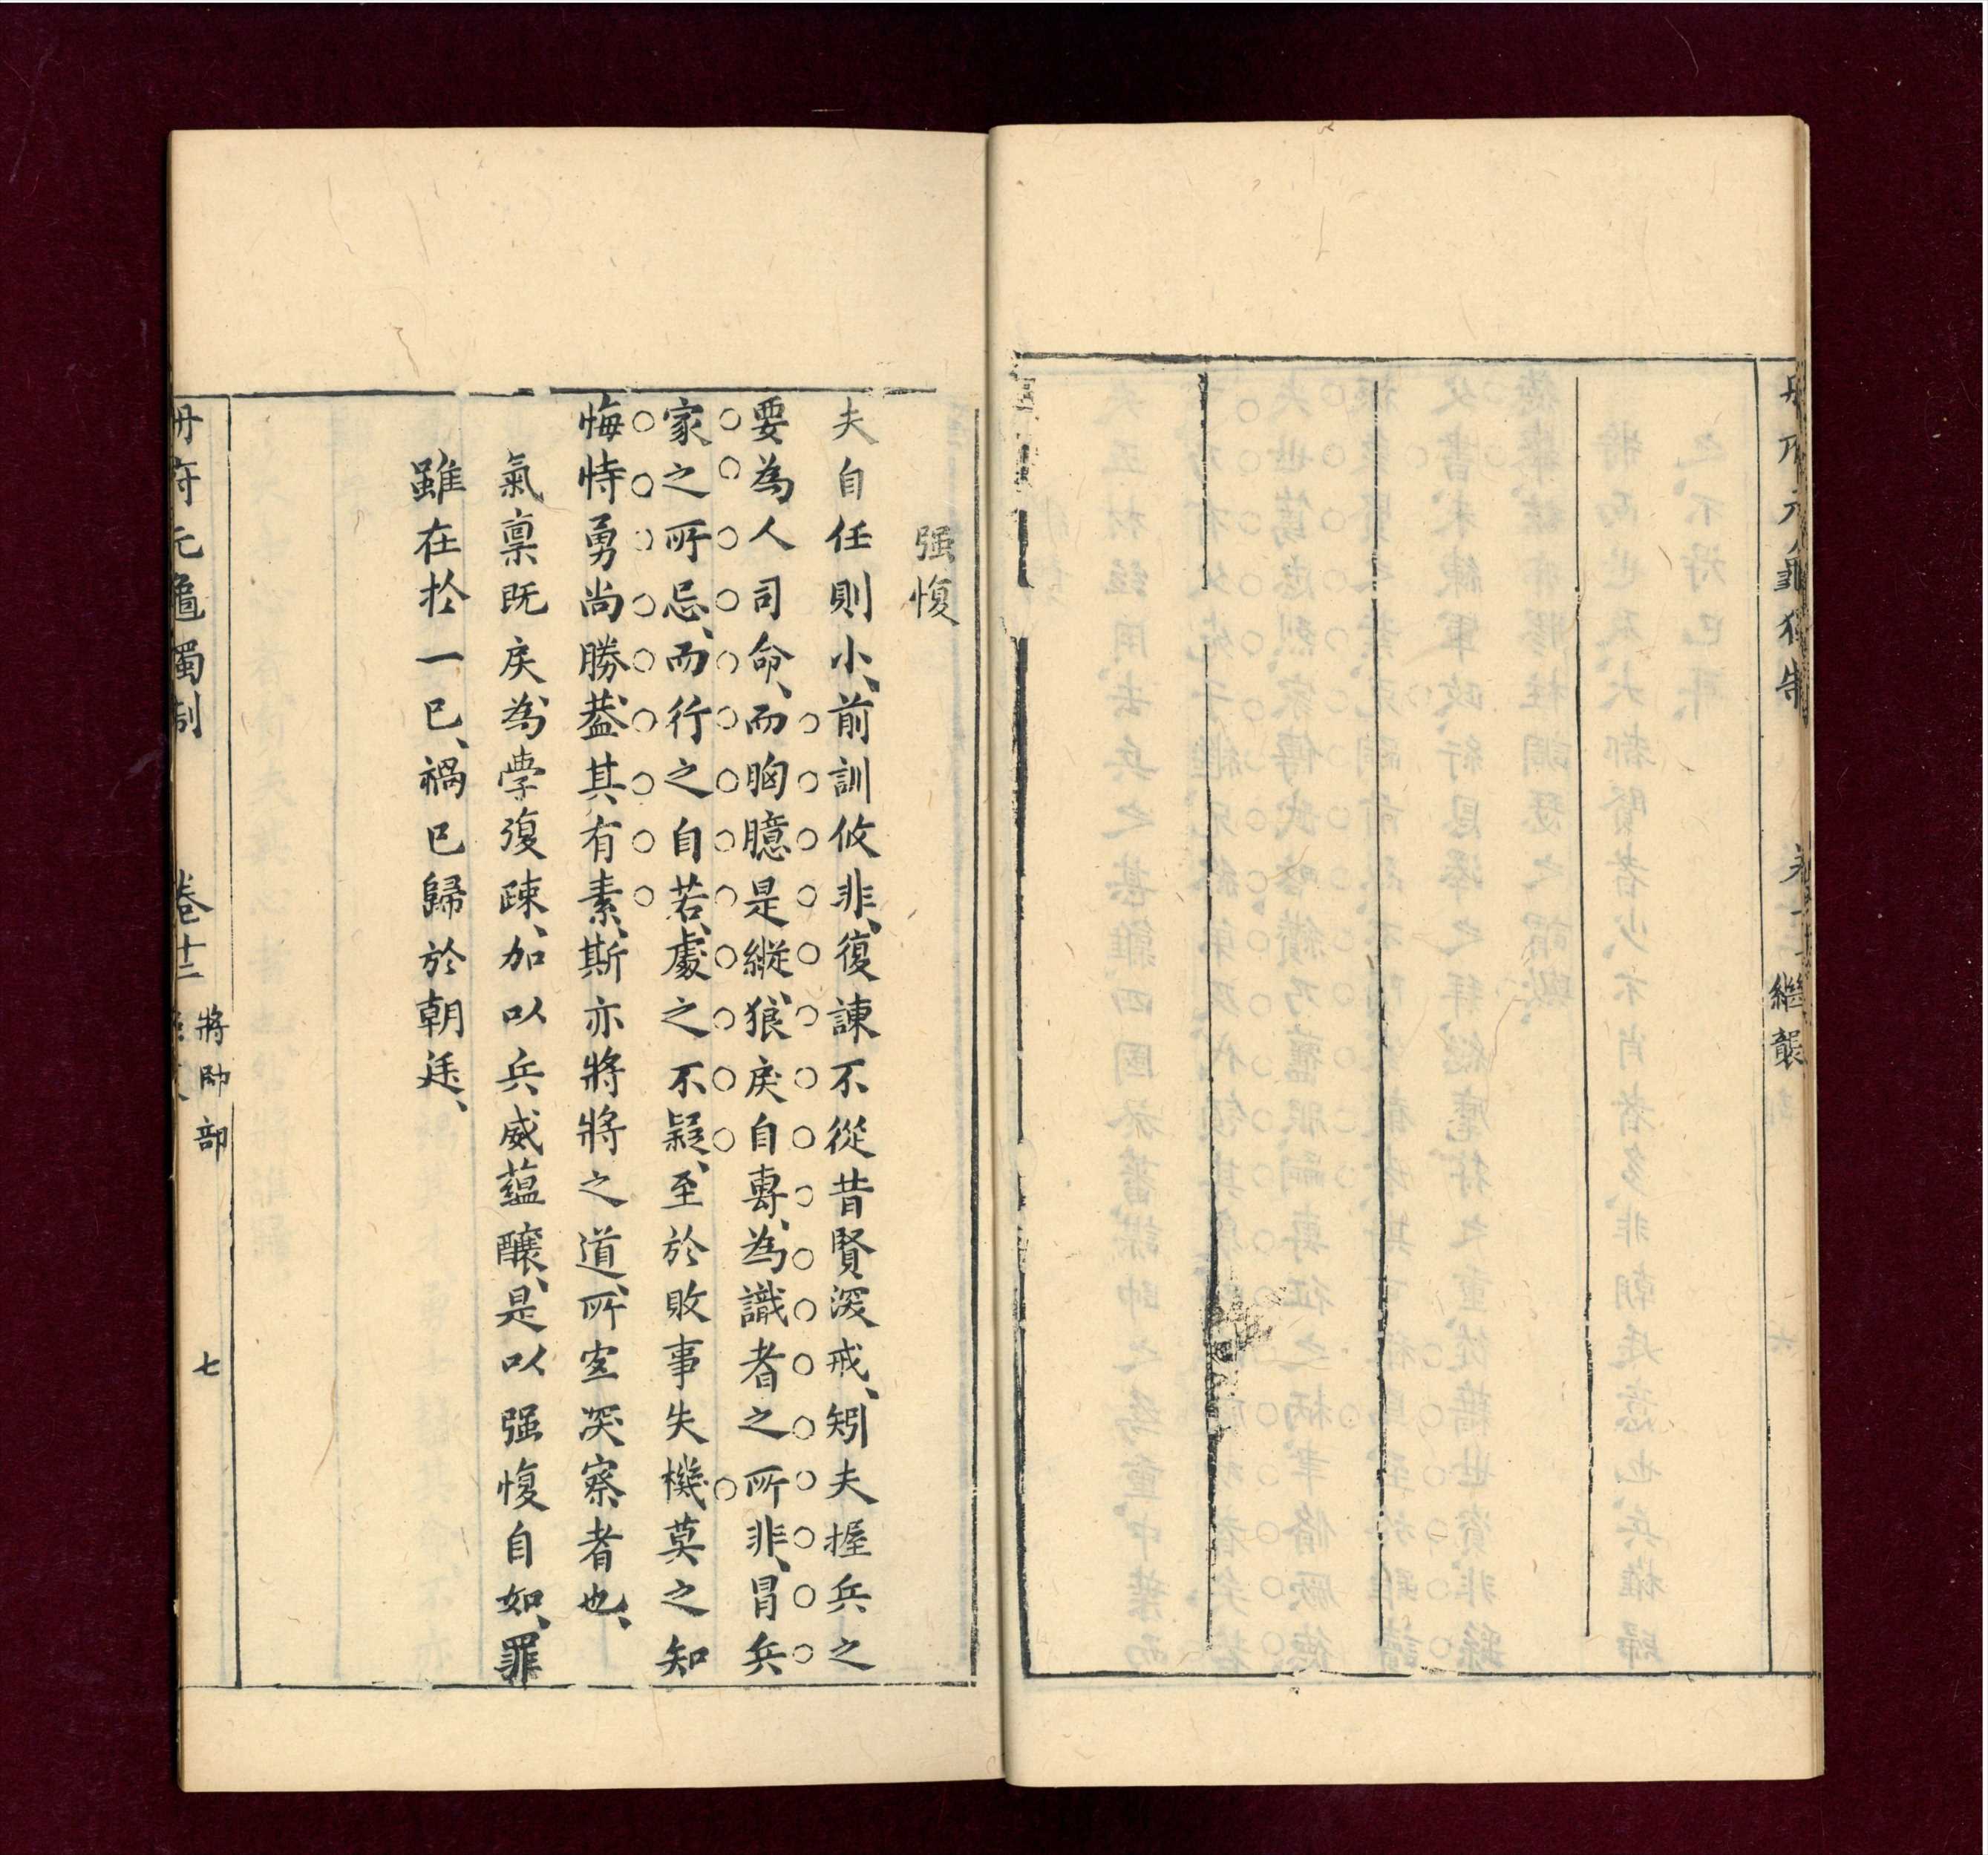 繼襲
强愎
夫自任則小、前訓攸非、復諫不從昔賢深戒、矧夫握兵之
要為人司命、而胸臆是縱、狼戾自專、為識者之所非、冒兵
家之所忌、而行之自若、處之不疑、至於敗事失機莫之知
悔恃勇尚勝、葢其有素、斯亦將將之道、所宜深察者也、
氣禀既戾、為學復疎、加以兵威蘊釀、是以强愎自如、罪
雖在於一已、禍已歸於朝廷、
冊府元龜獨制 卷十二 將帥部 七